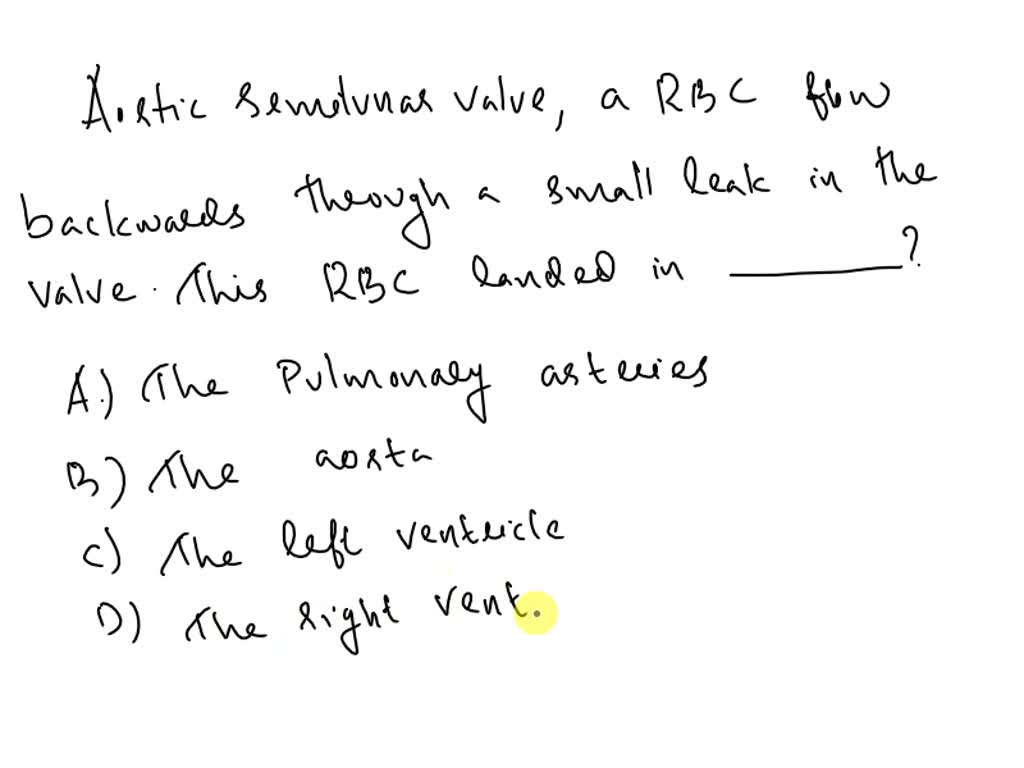 Aortic semilunar valve, a RBC flow
backwards through a small leak in the
valve. This RBC landed in ______?
A.) The Pulmonary arteries
B) The aorta
C) The left ventricle
D) The right vent.